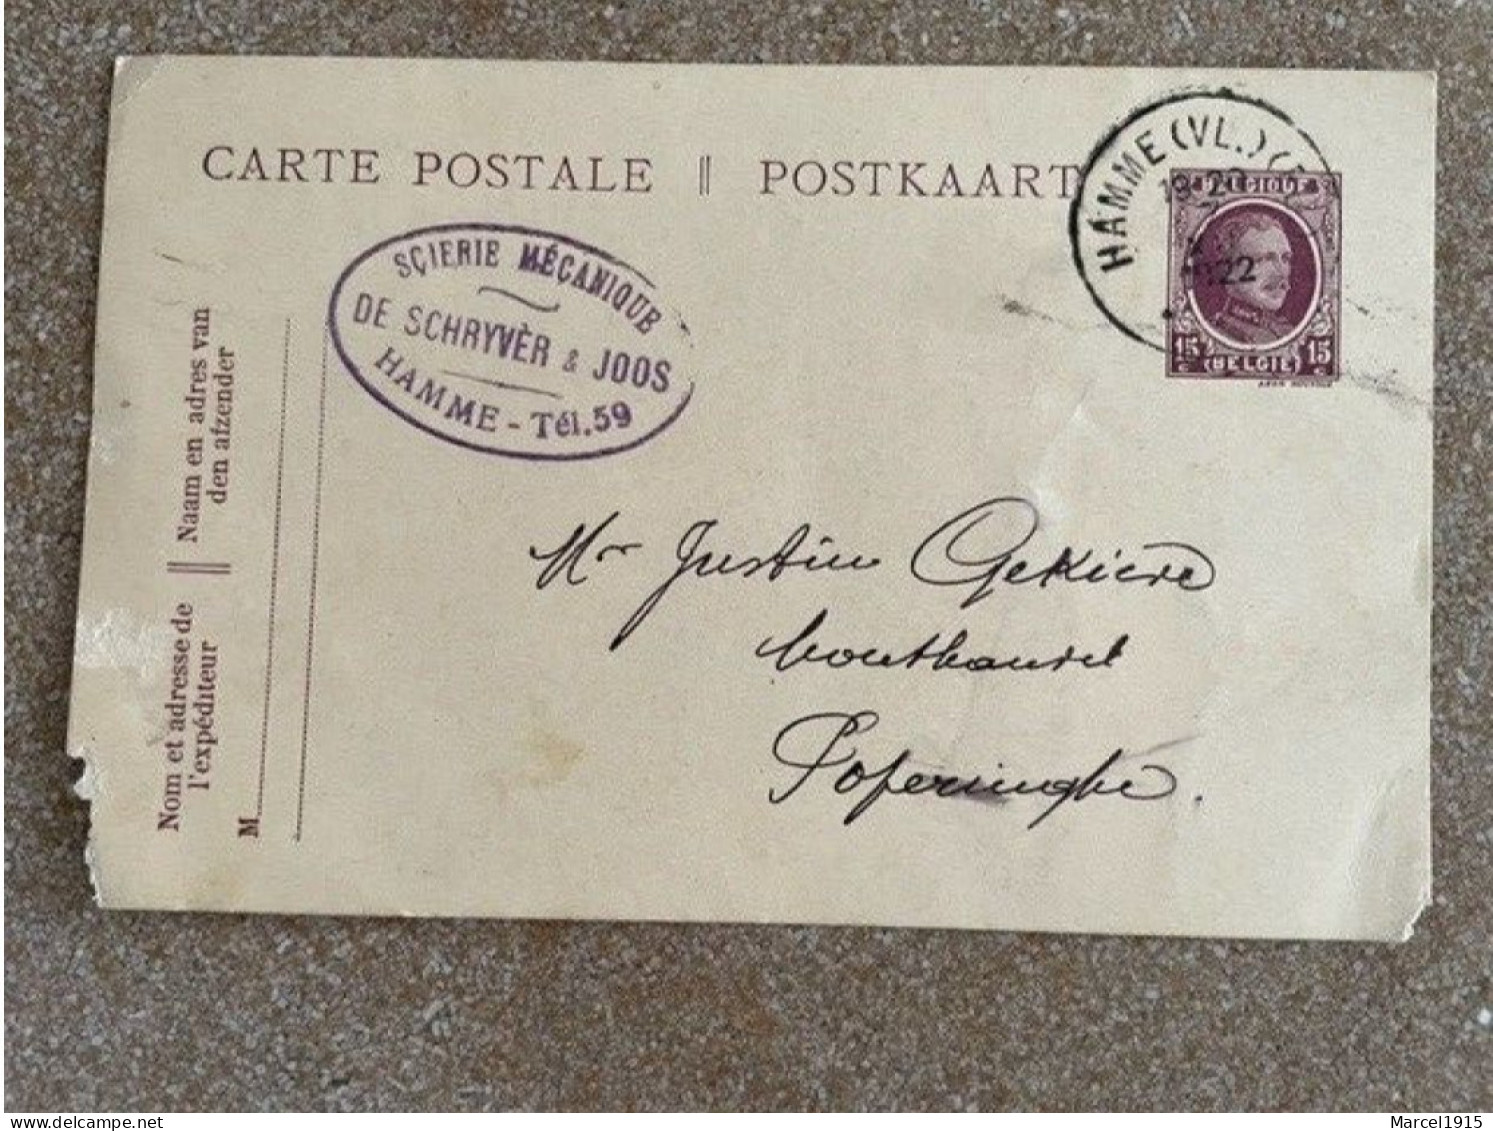 CARTE POSTALE || POSTKAART
HAMME (VL.)
22
BELGIQUE
15 (BELGIE) 15
SÇIERIE MÉÇANIQUE
DE SCHRYVÈR & JOOS
HAMME - Tél. 59
Naam en adres van
den afzender
Nom et adresse de
l'expéditeur
M
Mr Justin Gekiere
houthandel
Poperinghe.
delcampe.net
Marcel1915